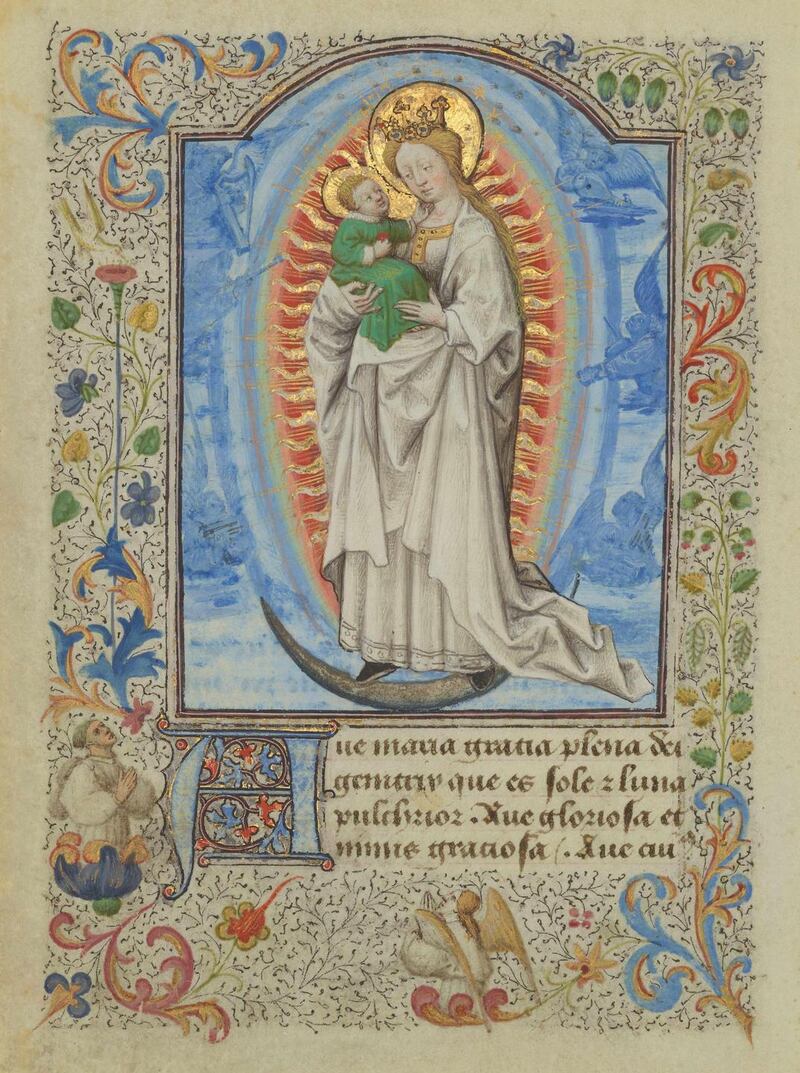 Aue maria gratia plena dei
genitrix que es sole ⁊ luna
pulchrior. Aue gloriosa et
nimis graciosa /. Aue cui